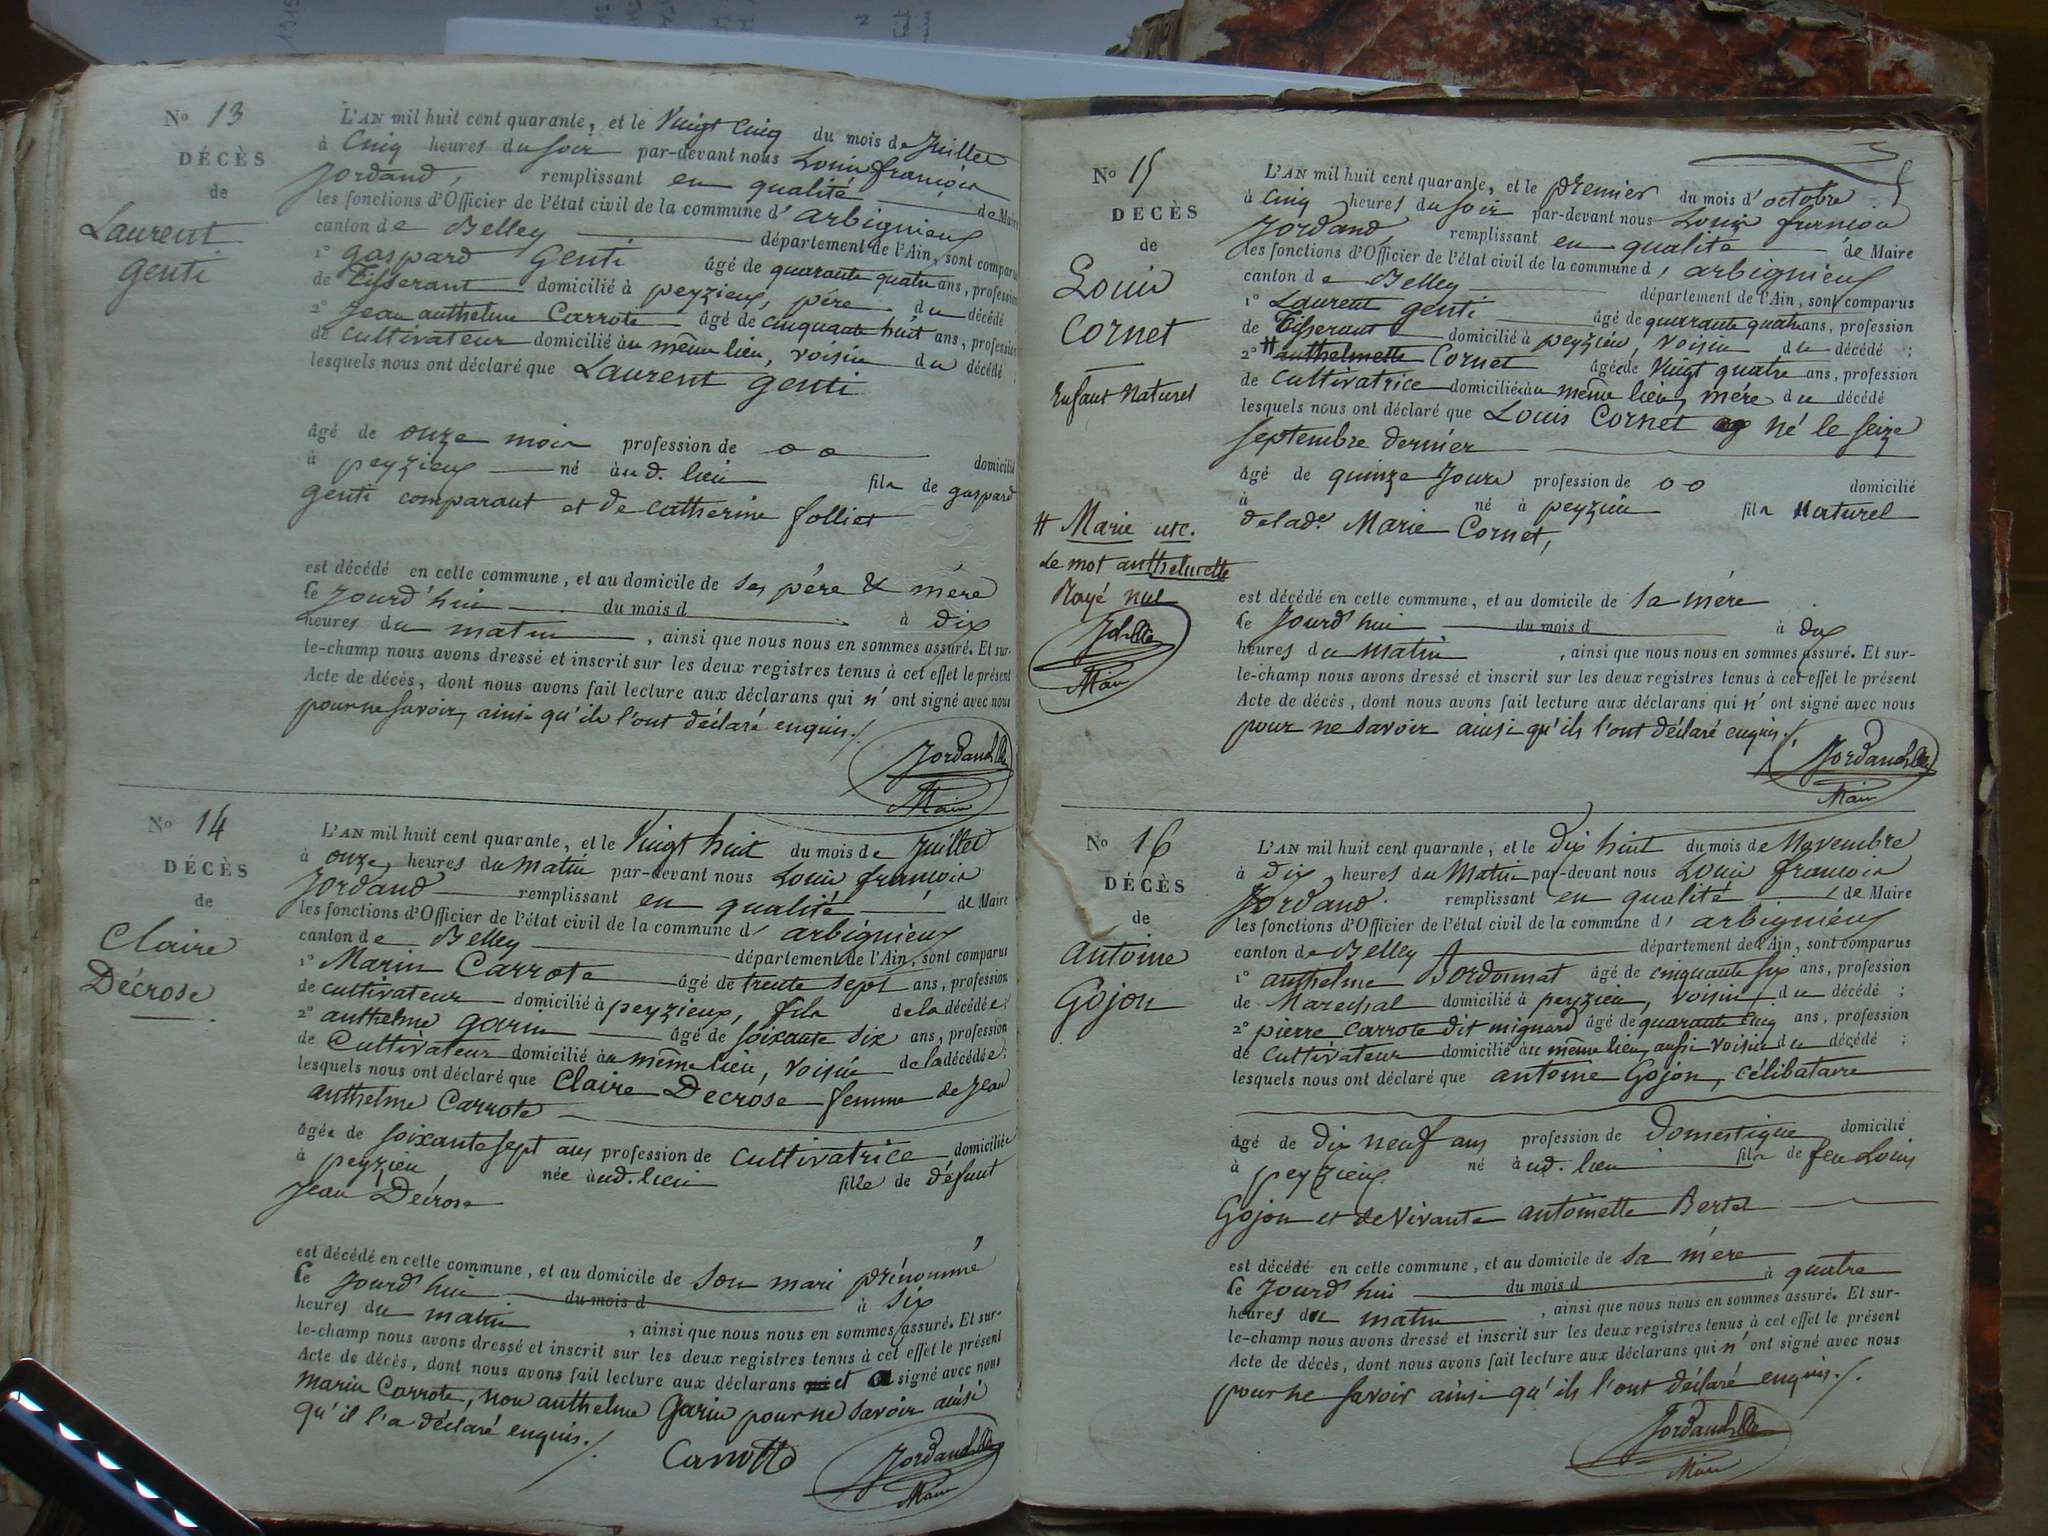 No 13
DÉCÈS
de
Laurent
genti
L'AN mil huit cent quarante, et le Vingt Cinq du mois de Juillet
à Cinq heures du soir par-devant nous Louis françois
Jordand, remplissant en qualité de Maire
les fonctions d'Officier de l'état civil de la commune d'arbignieux
canton de Belley département de l'Ain, sont comparus
1° gaspard Genti âgé de quarante quatre ans, profession
de tisserant domicilié à peyzieux, père du décédé
2° Jean anthelme Carrote âgé de cinquante huit ans, profession
de cultivateur domicilié au même lieu, voisin du décédé
lesquels nous ont déclaré que Laurent genti
âgé de onze mois profession de o o domicilié
à peyzieux né au d. lieu fils de gaspard
genti comparant et de catherine folliet
est décédé en cette commune, et au domicile de ses père & mère
le jourd'hui du mois d à dix
heures du matin, ainsi que nous nous en sommes assuré. Et sur-
le-champ nous avons dressé et inscrit sur les deux registres tenus à cet effet le présent
Acte de décès, dont nous avons fait lecture aux déclarans qui n'ont signé avec nous
pour ne savoir, ainsi qu'ils l'ont déclaré enquis./.
Jordand
Maire
No 14
DÉCÈS
de
Claire
Décrose
L'AN mil huit cent quarante, et le Vingt huit du mois de Juillet
à onze heures du matin par-devant nous Louis françois
Jordand remplissant en qualité de Maire
les fonctions d'Officier de l'état civil de la commune d'arbignieux
canton de Belley département de l'Ain, sont comparus
1° Marin Carrote âgé de trente sept ans, profession
de cultivateur domicilié à peyzieux, fils de la décédée;
2° anthelme garin âgé de soixante dix ans, profession
de Cultivateur domicilié au même lieu, voisin de la décédée;
lesquels nous ont déclaré que Claire Decrose femme de Jean
anthelme Carrote
âgée de soixante sept ans profession de cultivatrice domiciliée
à peyzieu née au d. lieu fille de défunt
Jean Décrose
est décédé en cette commune, et au domicile de son mari prénommé
le jourd'hui du mois d à six
heures du matin, ainsi que nous nous en sommes assuré. Et sur-
le-champ nous avons dressé et inscrit sur les deux registres tenus à cet effet le présent
Acte de décès, dont nous avons fait lecture aux déclarans et a signé avec nous
marin Carrote, non anthelme Garin pour ne savoir ainsi
qu'il l'a déclaré enquis./.
Carrotte
Jordand
Maire
No 15
DÉCÈS
de
Louis
Cornet
Enfant Naturel
L'AN mil huit cent quarante, et le premier du mois d'octobre
à cinq heures du soir par-devant nous Louis françois
Jordand, remplissant en qualité de Maire
les fonctions d'Officier de l'état civil de la commune d'arbignieux
canton de Belley département de l'Ain, sont comparus
1° Laurent genti âgé de quarante quatre ans, profession
de Tisserant domicilié à peyzieu, voisin du décédé;
2° # anthelmette Cornet âgée de Vingt quatre ans, profession
de cultivatrice domiciliée au même lieu, mère du décédé
lesquels nous ont déclaré que Louis Cornet né le seize
septembre dernier
âgé de quinze jours profession de o o domicilié
à né à peyzieu fils Naturel
de lad.e Marie Cornet,
# Marie etc.
Le mot anthelmette
Rayé nul
Maire
est décédé en cette commune, et au domicile de sa mère
le jourd'hui du mois d à dix
heures du matin, ainsi que nous nous en sommes assuré. Et sur-
le-champ nous avons dressé et inscrit sur les deux registres tenus à cet effet le présent
Acte de décès, dont nous avons fait lecture aux déclarans qui n'ont signé avec nous
pour ne savoir ainsi qu'ils l'ont déclaré enquis./.
Jordand
Maire
No 16
DÉCÈS
de
antoine
Gojon
L'AN mil huit cent quarante, et le dix huit du mois de Novembre
à dix heures du Matin par-devant nous Louis françois
Jordand remplissant en qualité de Maire
les fonctions d'Officier de l'état civil de la commune d'arbignieux
canton de Belley département de l'Ain, sont comparus
1° anthelme Bordonnat âgé de cinquante six ans, profession
de Marechal domicilié à peyzieu, voisin du décédé;
2° pierre Carrote dit mignard âgé de quarante cinq ans, profession
de Cultivateur domicilié au même lieu, aussi voisin du décédé;
lesquels nous ont déclaré que antoine Gojon, célibataire
âgé de dix neuf ans profession de Domestique domicilié
à peyzieux né au d. lieu fils de feu Louis
Gojon et de Vivante antoinette Bertet
est décédé en cette commune, et au domicile de sa mère
le jourd'hui du mois d à quatre
heures du matin, ainsi que nous nous en sommes assuré. Et sur-
le-champ nous avons dressé et inscrit sur les deux registres tenus à cet effet le présent
Acte de décès, dont nous avons fait lecture aux déclarans qui n'ont signé avec nous
pour ne savoir ainsi qu'ils l'ont déclaré enquis./.
Jordand
Maire